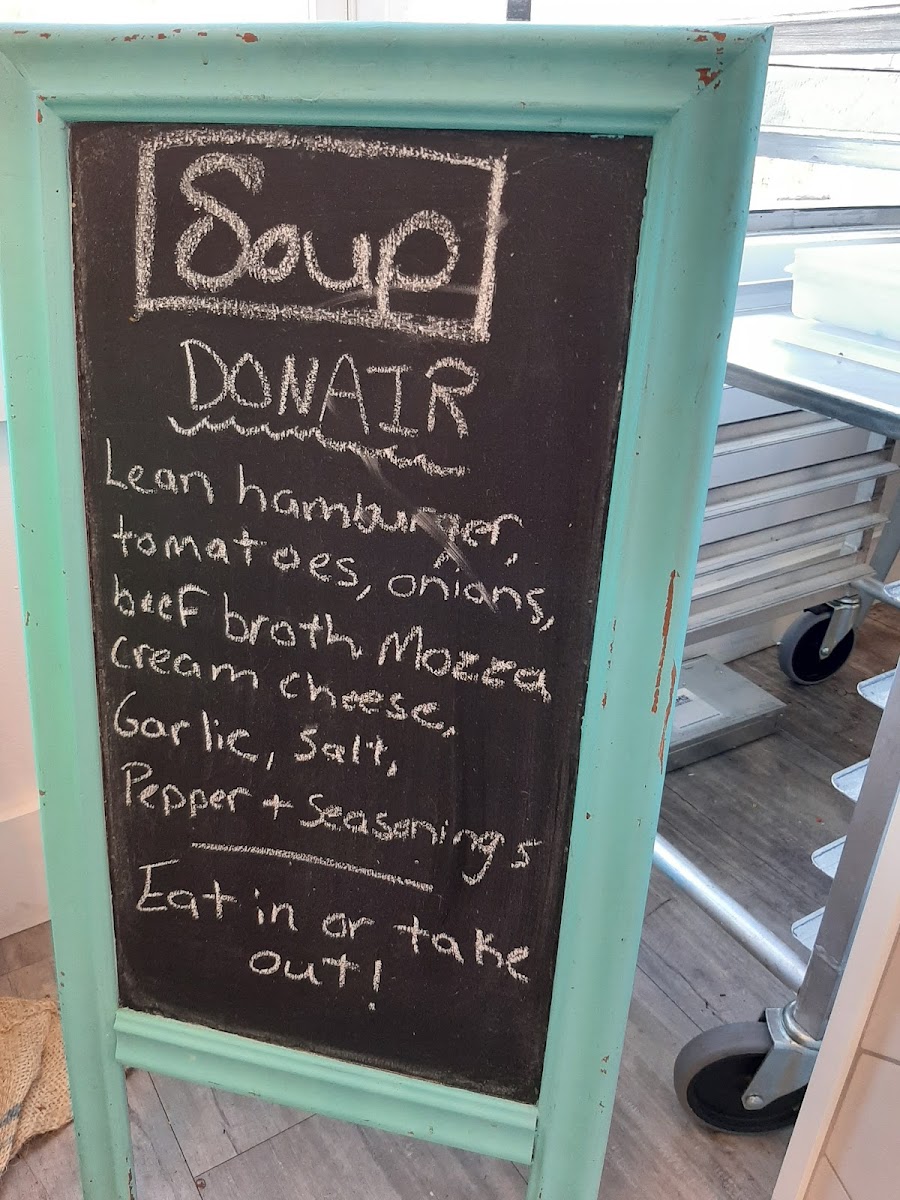 Soup
DONAIR
Lean hamburger,
tomatoes, onions,
beef broth Mozza,
cream cheese,
Garlic, Salt,
Pepper + Seasonings
Eat in or take
out!